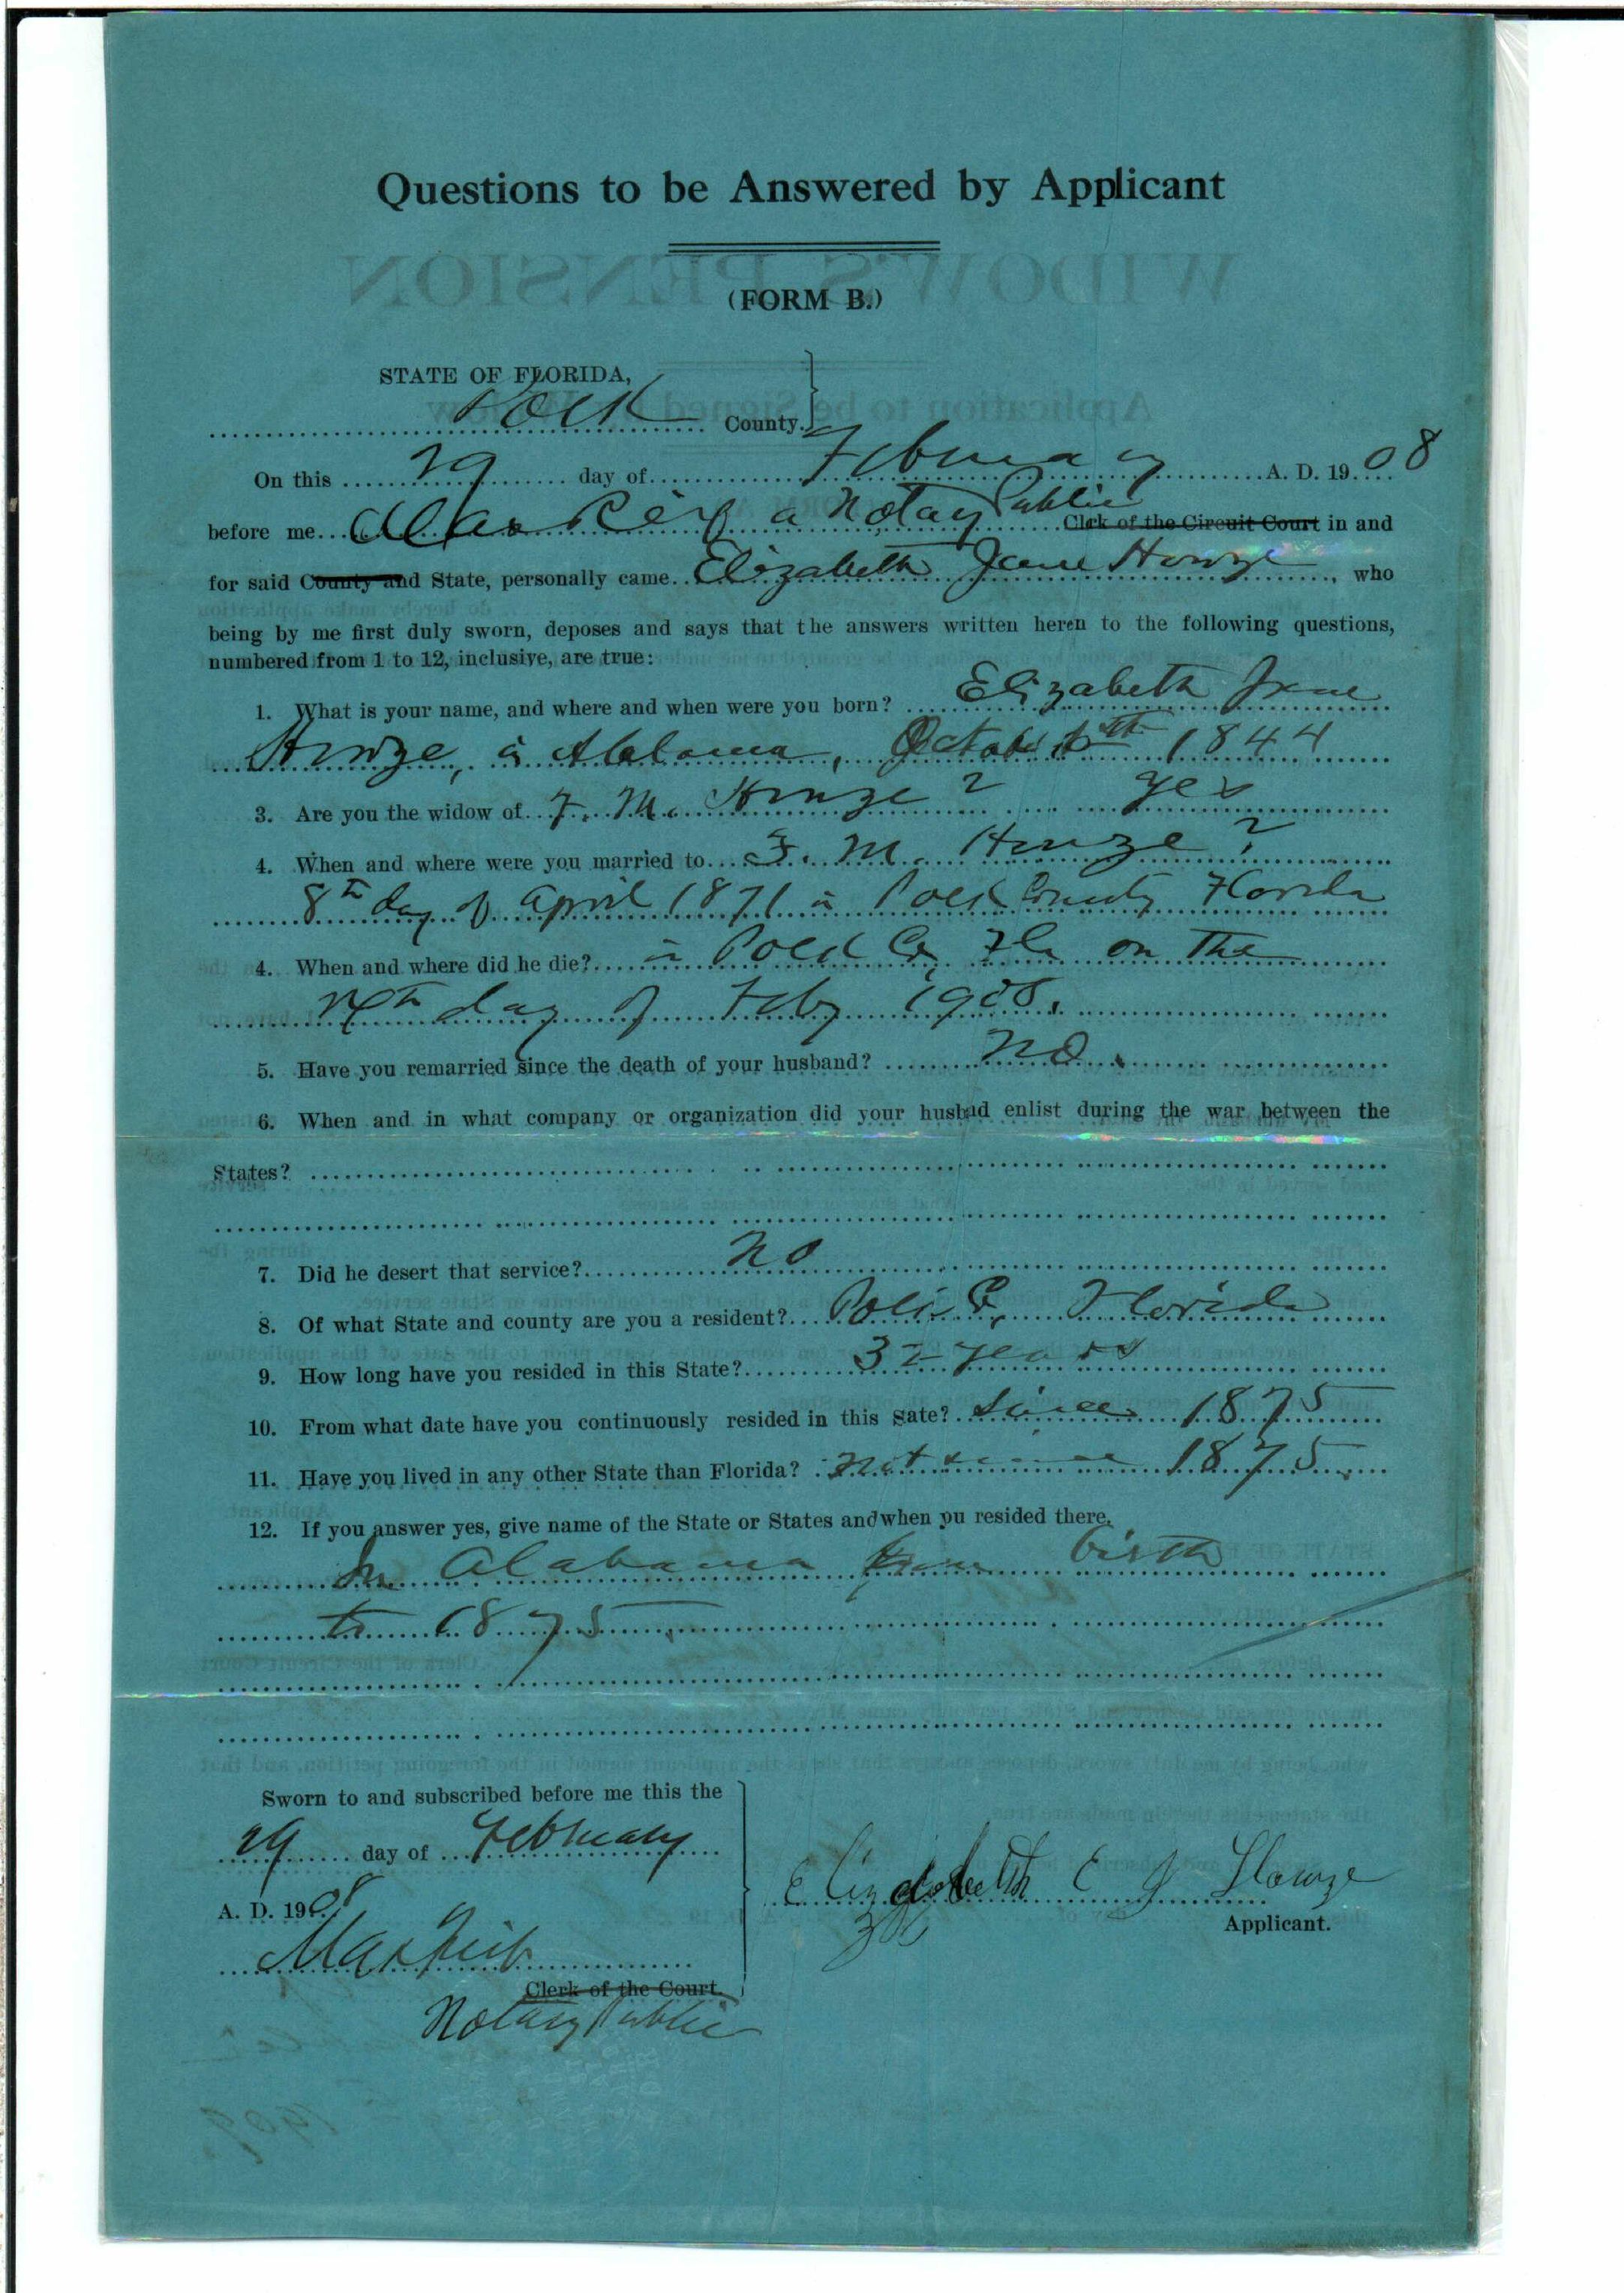 Questions to be Answered by Applicant
(FORM B.)
STATE OF FLORIDA,
Polk County.
On this 29 day of February A. D. 1908
before me Max Reif a Notary Public Clrk of the Circuit Court in and
for said County and State, personally came Elizabeth Jane Howze, who
being by me first duly sworn, deposes and says that the answers written heren to the following questions,
numbered from 1 to 12, inclusive, are true:
1. What is your name, and where and when were you born? Elizabeth Jane
Howze, in Alabama, October th 1844
3. Are you the widow of F. M. Howze? yes
4. When and where were you married to F. M. Howze?
8th day of April 1871 in Polk County Florida
4. When and where did he die? in Polk Co, Fla on the
day of Feby 1908.
5. Have you remarried since the death of your husband? no.
6. When and in what company or organization did your husbad enlist during the war between the
States?
7. Did he desert that service? no
8. Of what State and county are you a resident? Polk Co, Florida
9. How long have you resided in this State? 32 years
10. From what date have you continuously resided in this sate? Since 1875
11. Have you lived in any other State than Florida? not since 1875.
12. If you answer yes, give name of the State or States and when ou resided there.
In Alabama from birth
to 1875.
Sworn to and subscribed before me this the
29 day of February
A. D. 1908
Max Reif
Clerk of the Court.
Notary Public
Elizabeth E J Howze
Applicant.